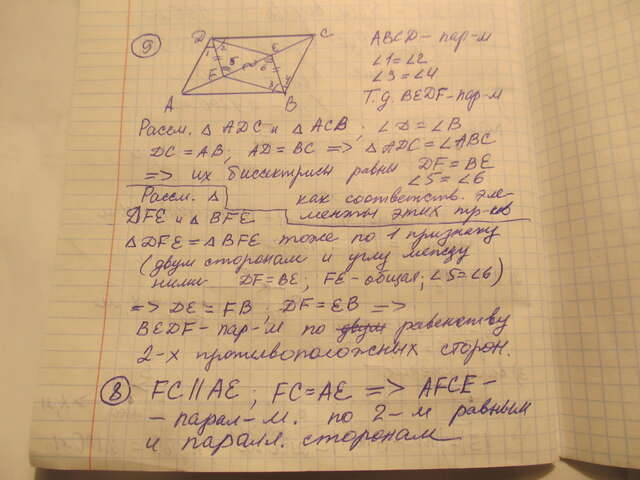 9
D
C
A
B
F
E
1
2
3
4
5
6
ABCD - пар-м
∠1=∠2
∠3=∠4
Т.д. BEDF-пар-м
Рассм. △ ADC и △ ACB ; ∠D=∠B
DC=AB; AD=BC => △ADC=∠ABC
=> их биссектрисы равны DF=BE
∠5=∠6
Рассм. △ как соответств. эле-
DFE и △ BFE менты этих тр-ков
△DFE=△BFE тоже по 1 признаку
(двум сторонам и углу между
ними DF=BE; FE-общая; ∠5=∠6)
=> DE=FB; DF=EB =>
BEDF-пар-м по двум равенству
2-х противоположных сторон.
8 FC||AE ; FC=AE => AFCE-
- парал-м. по 2-м равным
и паралл. сторонам